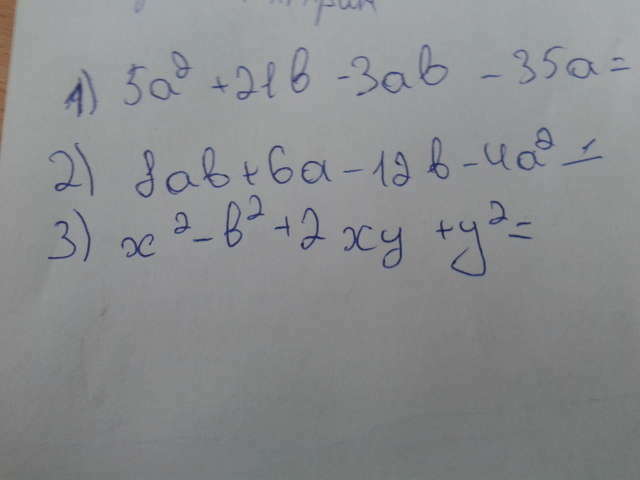 1) 5a² + 21b - 3ab - 35a =
2) 8ab + 6a - 12b - 4a² =
3) x² - b² + 2xy + y² =